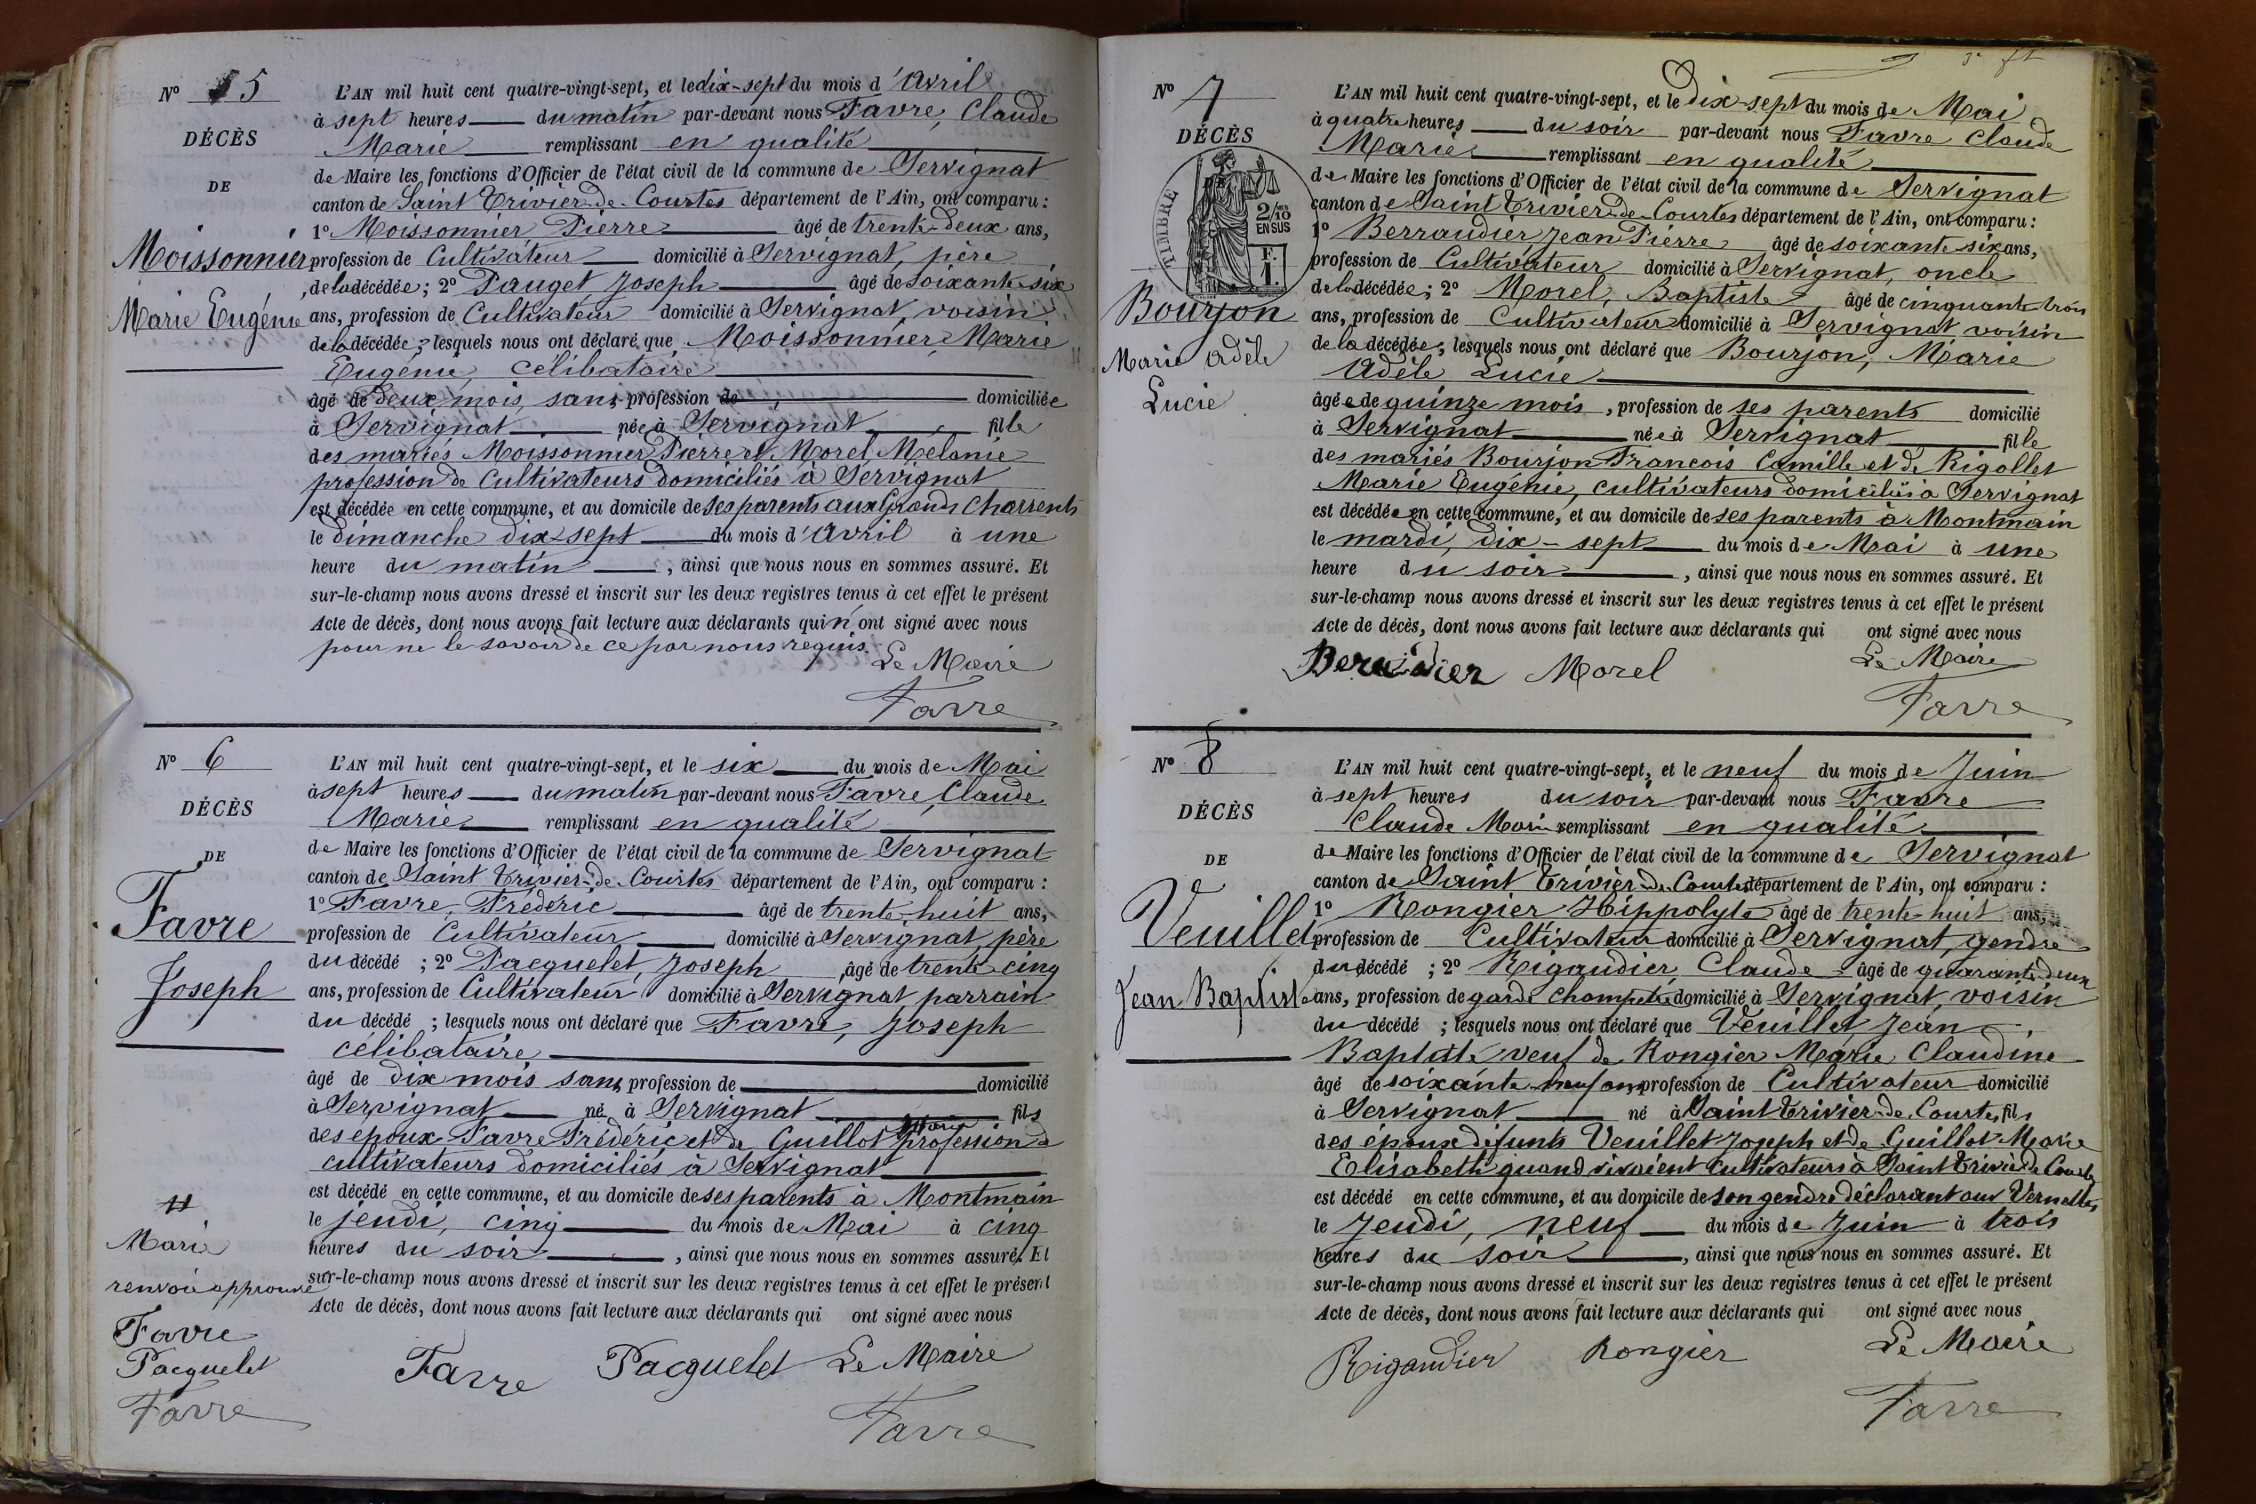 N° 5
DÉCÈS
DE
Moissonnier
Marie Eugénie
L'AN mil huit cent quatre-vingt-sept, et le dix-sept du mois d'Avril
à sept heures du matin par-devant nous Favre, Claude
Marie remplissant en qualité
de Maire les fonctions d'Officier de l'état civil de la commune de Servignat
canton de Saint Trivier-de-Courtes département de l'Ain, ont comparu :
1° Moissonnier Pierre âgé de trente-deux ans,
profession de Cultivateur domicilié à Servignat, père
de la décédée ; 2° Pauget Joseph âgé de soixante-six
ans, profession de Cultivateur domicilié à Servignat, voisin
de la décédée ; lesquels nous ont déclaré que Moissonnier, Marie
Eugénie, célibataire
âgé de deux mois, sans profession de domiciliée
à Servignat née à Servignat fille
des mariés Moissonnier Pierre et Morel Mélanie
profession de Cultivateurs domiciliés à Servignat
est décédée en cette commune, et au domicile de ses parents aux Grands Charrents
le dimanche dix-sept du mois d'Avril à une
heure du matin, ainsi que nous nous en sommes assuré. Et
sur-le-champ nous avons dressé et inscrit sur les deux registres tenus à cet effet le présent
Acte de décès, dont nous avons fait lecture aux déclarants qui n'ont signé avec nous
pour ne le savoir de ce par nous requis.
Le Maire
Favre
N° 6
DÉCÈS
DE
Favre
Joseph
L'AN mil huit cent quatre-vingt-sept, et le six du mois de Mai
à sept heures du matin par-devant nous Favre, Claude
Marie remplissant en qualité
de Maire les fonctions d'Officier de l'état civil de la commune de Servignat
canton de Saint Trivier-de-Courtes département de l'Ain, ont comparu :
1° Favre, Frédéric âgé de trente-huit ans,
profession de Cultivateur domicilié à Servignat, père
du décédé ; 2° Pacquelet, Joseph âgé de trente cinq
ans, profession de Cultivateur domicilié à Servignat parrain
du décédé ; lesquels nous ont déclaré que Favre, Joseph
célibataire
âgé de dix mois sans profession de domicilié
à Servignat né à Servignat fils
des époux Favre Frédéric et de Guillot Marie profession de
cultivateurs domiciliés à Servignat
est décédé en cette commune, et au domicile de ses parents à Montmain
le jeudi, cinq du mois de Mai à cinq
heures du soir, ainsi que nous nous en sommes assuré. Et
sur-le-champ nous avons dressé et inscrit sur les deux registres tenus à cet effet le présent
Acte de décès, dont nous avons fait lecture aux déclarants qui ont signé avec nous
Marie
renvoi approuvé
Favre
Pacquelet
Favre
Favre Pacquelet Le Maire
Favre
N° 7
DÉCÈS
TIMBRE
2/10 EN SUS
F. 1.
Bourjon
Marie Adèle
Lucie
L'AN mil huit cent quatre-vingt-sept, et le Dix-sept du mois de Mai
à quatre heures du soir par-devant nous Favre Claude
Marie remplissant en qualité
de Maire les fonctions d'Officier de l'état civil de la commune de Servignat
canton de Saint Trivier-de-Courtes département de l'Ain, ont comparu :
1° Berraudier, Jean Pierre âgé de soixante six ans,
profession de Cultivateur domicilié à Servignat, oncle
de la décédée ; 2° Morel, Baptiste âgé de cinquante-trois
ans, profession de Cultivateur domicilié à Servignat voisin
de la décédée ; lesquels nous ont déclaré que Bourjon, Marie
Adèle Lucie
âgée de quinze mois, profession de ses parents domicilié
à Servignat née à Servignat fille
des mariés Bourjon François Camille et de Rigollet
Marie Eugénie, cultivateurs domiciliés à Servignat
est décédée en cette commune, et au domicile de ses parents à Montmain
le mardi, dix-sept du mois de Mai à une
heure du soir, ainsi que nous nous en sommes assuré. Et
sur-le-champ nous avons dressé et inscrit sur les deux registres tenus à cet effet le présent
Acte de décès, dont nous avons fait lecture aux déclarants qui ont signé avec nous
Morel Le Maire
Favre
N° 8
DÉCÈS
DE
Veuillet
Jean Baptiste
L'AN mil huit cent quatre-vingt-sept, et le neuf du mois de Juin
à sept heures du soir par-devant nous Favre
Claude Marie remplissant en qualité
de Maire les fonctions d'Officier de l'état civil de la commune de Servignat
canton de Saint Trivier-de-Courtes département de l'Ain, ont comparu :
1° Rongier Hippolyte âgé de trente-huit ans,
profession de Cultivateur domicilié à Servignat, gendre
du décédé ; 2° Rigaudier Claude âgé de quarante-deux
ans, profession de garde champêtre domicilié à Servignat, voisin
du décédé ; lesquels nous ont déclaré que Veuillet Jean
Baptiste veuf de Rongier Marie Claudine
âgé de soixante-neuf ans profession de Cultivateur domicilié
à Servignat né à Saint Trivier-de-Courtes, fils
des époux défunts Veuillet Joseph et de Guillot Marie
Elisabeth quand vivaient cultivateurs à Saint Trivier de Courtes
est décédé en cette commune, et au domicile de son gendre déclarant aux Vernettes
le jeudi, neuf du mois de Juin à trois
heures du soir, ainsi que nous nous en sommes assuré. Et
sur-le-champ nous avons dressé et inscrit sur les deux registres tenus à cet effet le présent
Acte de décès, dont nous avons fait lecture aux déclarants qui ont signé avec nous
Rigaudier Rongier Le Maire
Favre